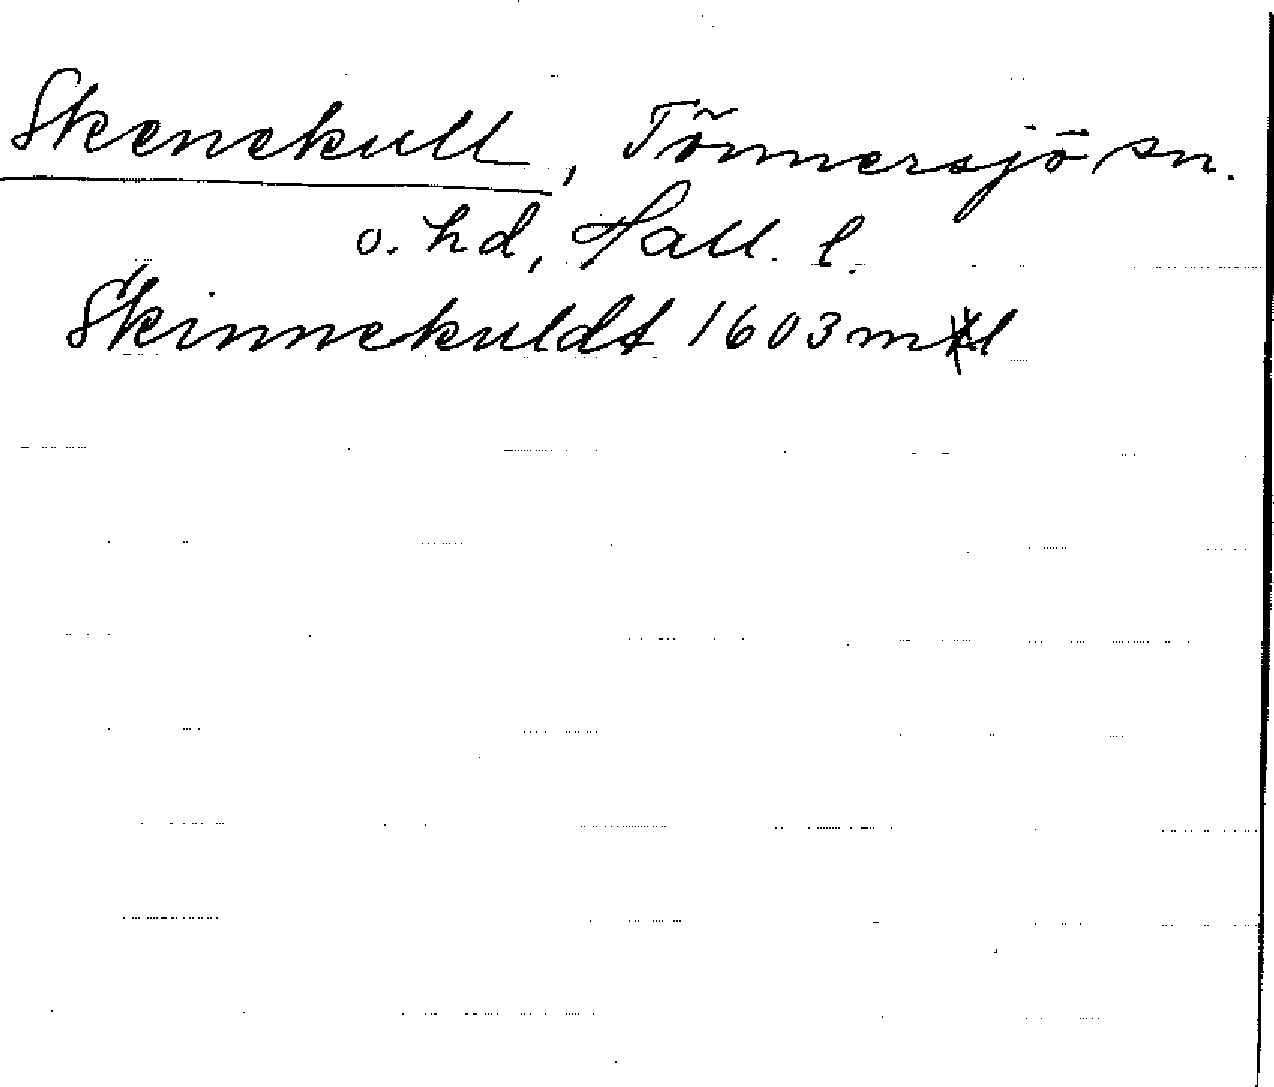 Skenekull, Tönnersjö sn.
o. hd, Hall. l.
Skinnekuldt 1603 mtl